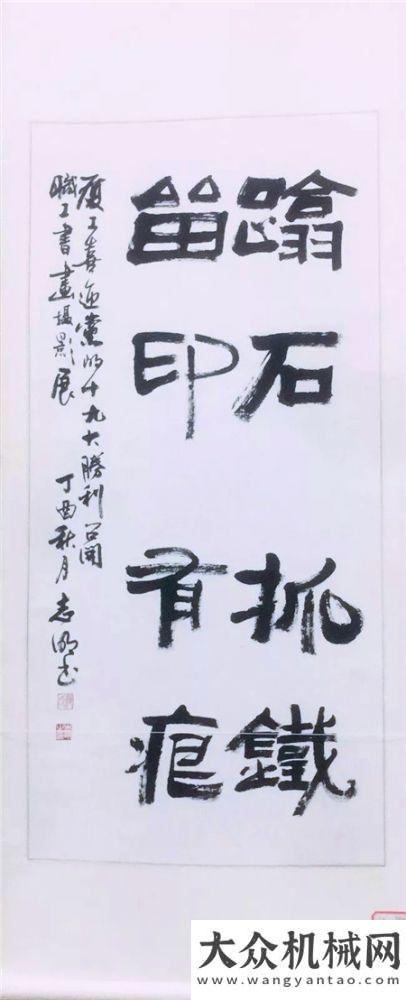 蹋石
留印
抓鐵
有痕
厦工喜迎黨的十九大勝利召開
職工書畫攝影展 丁酉秋月 志明书
大众机械网
www.wangyantao.com